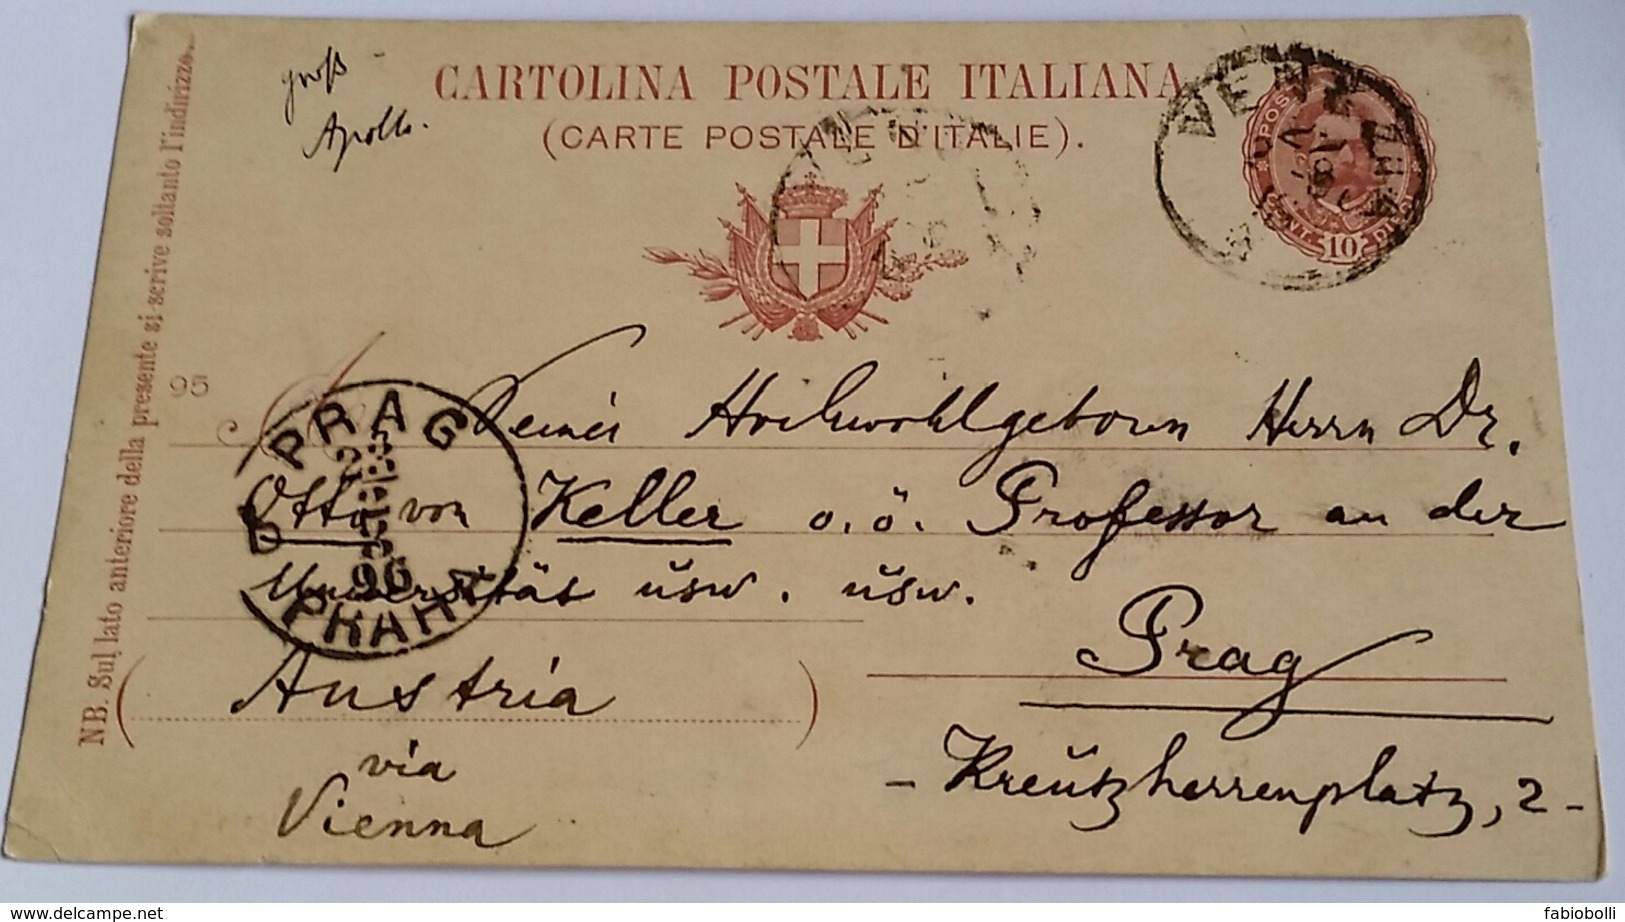 groß
Apollo.
CARTOLINA POSTALE ITALIANA
(CARTE POSTALE D'ITALIE).
VENEZIA
CENT. 10
NB. Sul lato anteriore della presente si scrive soltanto l'indirizzo.
95
Seiner Hochwohlgeborn Herrn Dr.
Otto von Keller o. ö. Professor an der
Universität usw. usw.
PRAG
96
PRAHA
Prag
Austria
via
Vienna
- Kreuzherrenplatz, 2 -
delcampe.net
fabiobolli